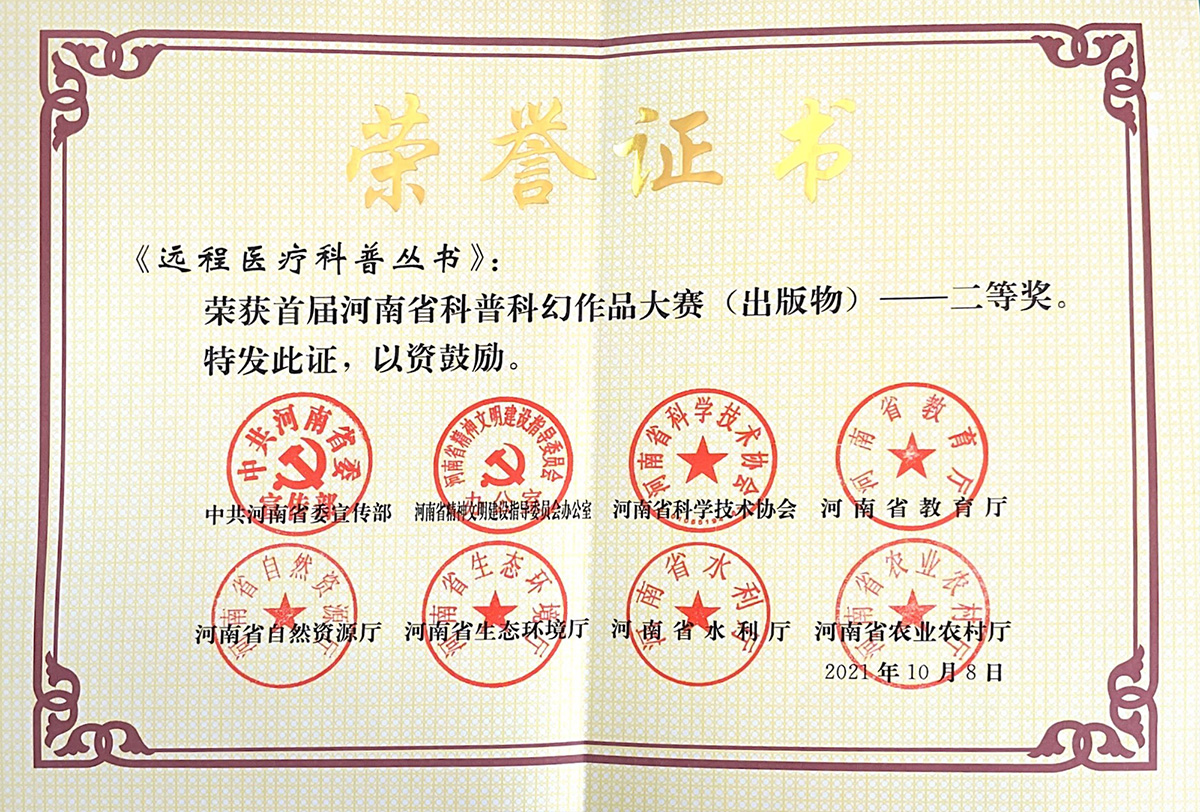 荣誉证书
《远程医疗科普丛书》：
荣获首届河南省科普科幻作品大赛（出版物）——二等奖。
特发此证，以资鼓励。
中共河南省委
宣传部
河南省精神文明建设指导委员会
办公室
河南省科学技术协会
河南省教育厅
中共河南省委宣传部 河南省精神文明建设指导委员会办公室 河南省科学技术协会 河南省教育厅
河南省自然资源厅
河南省生态环境厅
河南省水利厅
河南省农业农村厅
河南省自然资源厅 河南省生态环境厅 河南省水利厅 河南省农业农村厅
2021年10月8日